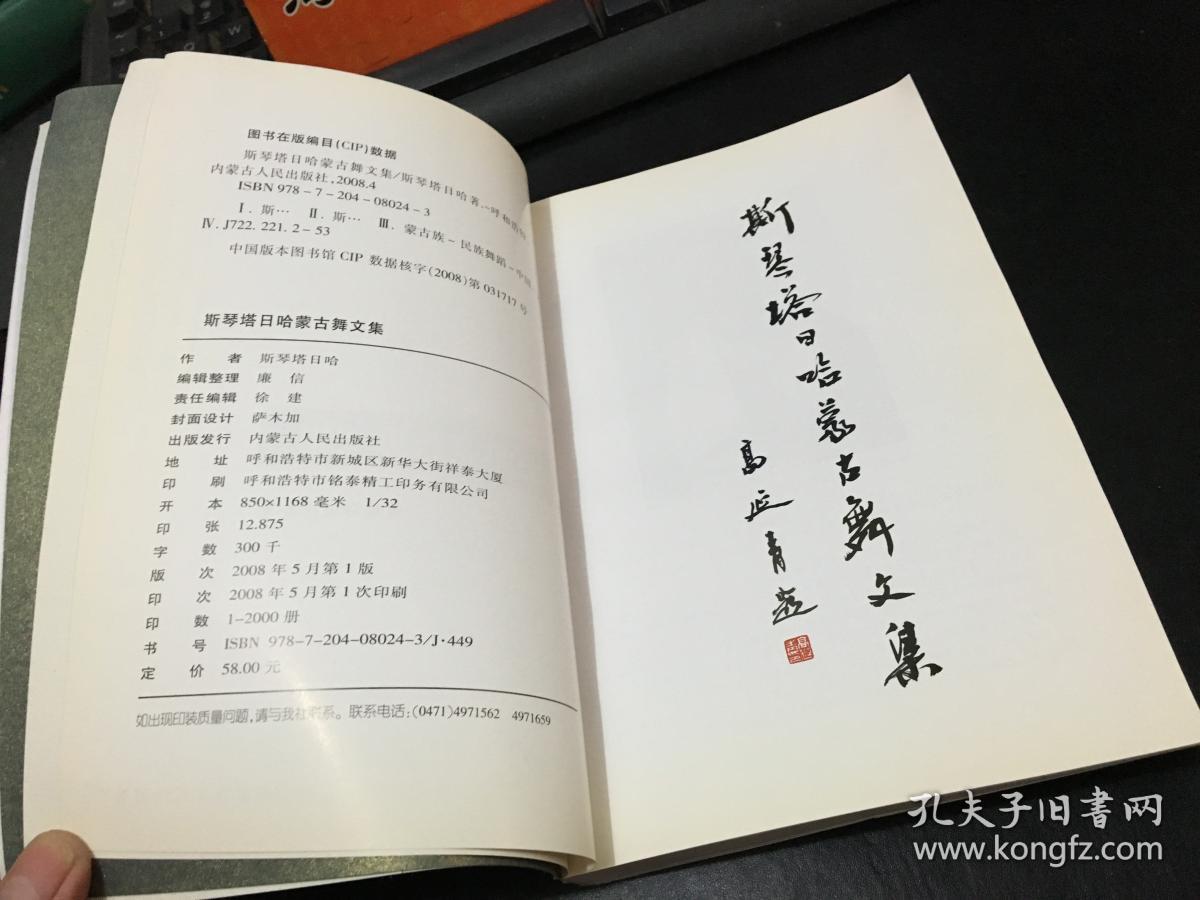 图书在版编目(CIP)数据
斯琴塔日哈蒙古舞文集/斯琴塔日哈著.-呼和浩特
内蒙古人民出版社,2008.4
ISBN 978-7-204-08024-3
Ⅰ. 斯… Ⅱ. 斯… Ⅲ. 蒙古族-民族舞蹈-中国
Ⅳ. J722. 221. 2-53
中国版本图书馆 CIP 数据核字(2008)第 031717 号
斯琴塔日哈蒙古舞文集
作者 斯琴塔日哈
编辑整理 廉信
责任编辑 徐建
封面设计 萨木加
出版发行 内蒙古人民出版社
地址 呼和浩特市新城区新华大街祥泰大厦
印刷 呼和浩特市铭泰精工印务有限公司
开本 850×1168 毫米 1/32
印张 12.875
字数 300 千
版次 2008 年 5 月第 1 版
印次 2008 年 5 月第 1 次印刷
印数 1-2000 册
书号 ISBN 978-7-204-08024-3/J·449
定价 58.00 元
如出现印装质量问题,请与我社联系。联系电话:(0471)4971562 4971659
斯琴塔日哈蒙古舞文集
高延青题
孔夫子旧书网
www.kongfz.com